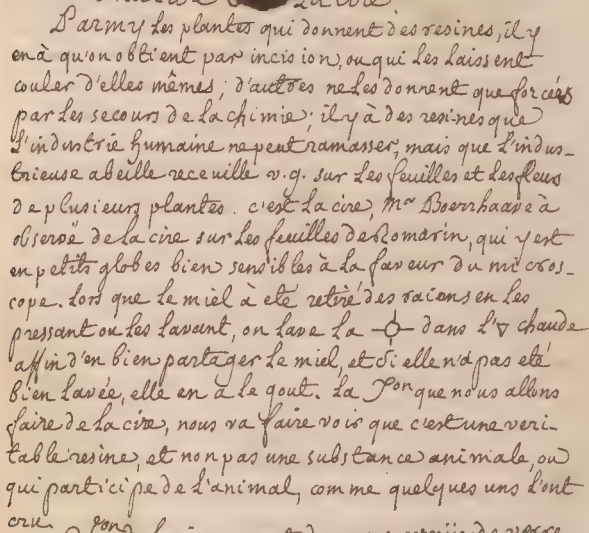 La cire
Parmy Les plantes qui donnent des resines, il y
en à qu'on obtient par incision, ou qui Les Laissent
couler d'elles mêmes; d'autres ne Les donnent que forcées
par Les secours de La chimie; il y à des resines que
L'industrie humaine ne peut ramasser, mais que L'indus-
trieuse abeille receuille v.g. sur Les feuilles et Les fleurs
de plusieurs plantes. c'est La cire, Mr Boerrhaave à
observé de La cire sur Les feuilles de Romarin, qui y est
en petits globes bien sensibles à La faveur du micros-
cope. Lors que Le miel à eté retiré des raions en Les
pressant ou Les Lavant, on Lave La dans L'▽ chaude
affin d'en bien partager Le miel, et si elle n'a pas eté
bien Lavée, elle en à Le gout. La que nous allons
faire de La cire, nous va faire voir que c'est une veri-
table resine, et non pas une substance animale, ou
qui participe de L'animal, comme quelques uns L'ont
cru.